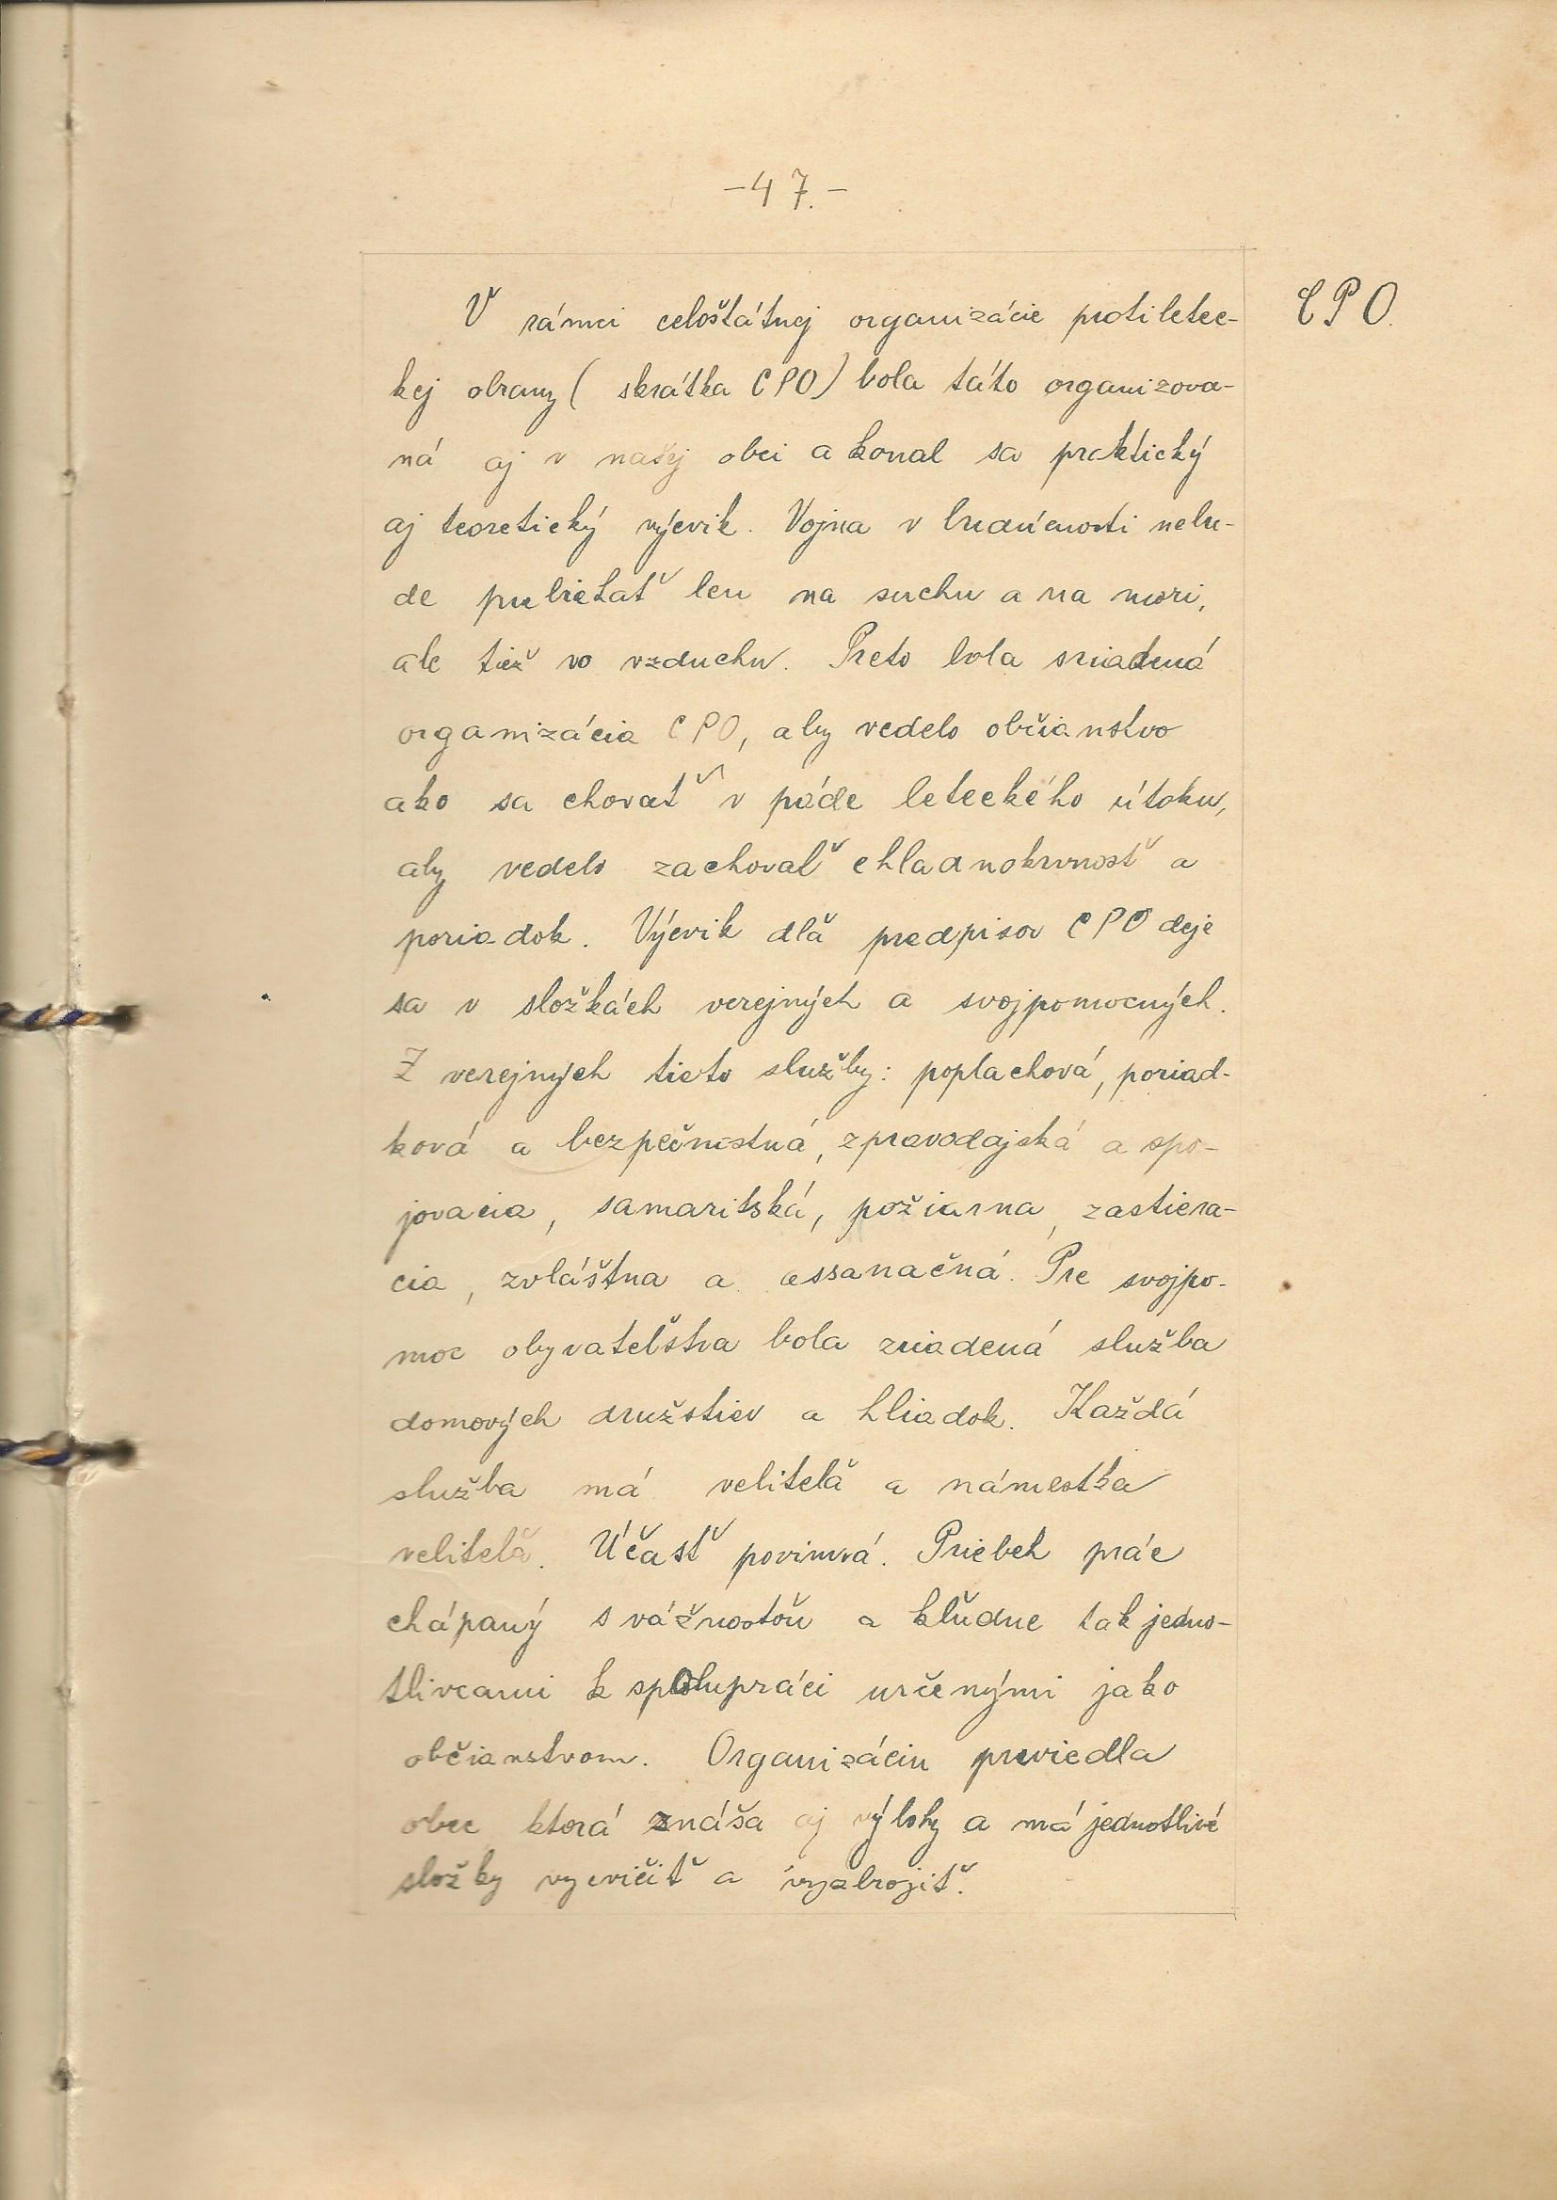 -47.-
V rámci celoštátnej organizácie protiletec-
CPO.
kej obrany ( skrátka CPO) bola táto organizova-
ná aj v našej obci a konal sa praktický
aj teoretický výcvik. Vojna v budúcnosti nebu-
de prebiehať len na suchu a na mori,
ale tiež vo vzduchu. Preto bola sriadená
organizácia CPO, aby vedelo občianstvo
ako sa chovať v páde leteckého útoku,
aby vedelo zachovať chladnokrvnosť a
poriadok. Výcvik dľa predpisov CPO deje
sa v složkách verejných a svojpomocných.
Z verejných tieto služby: poplachová, poriad-
ková a bezpečnostná, zpravodajská a spo-
jovacia, samaritská, požiarna, zastiera-
cia, zvláštna a assanačná. Pre svojpo-
moc obyvateľstva bola zriadená služba
domových družstiev a hliadok. Každá
služba má veliteľa a námestka
veliteľa. Účasť povinná. Priebeh prác
chápaný s vážnosťou a kľudne tak jedno-
tlivcami k spolupráci určenými jako
občianstvom. Organizáciu previedla
obec ktorá znáša aj výlohy a má jednotlivé
složky vycvičiť a vyzbrojiť.